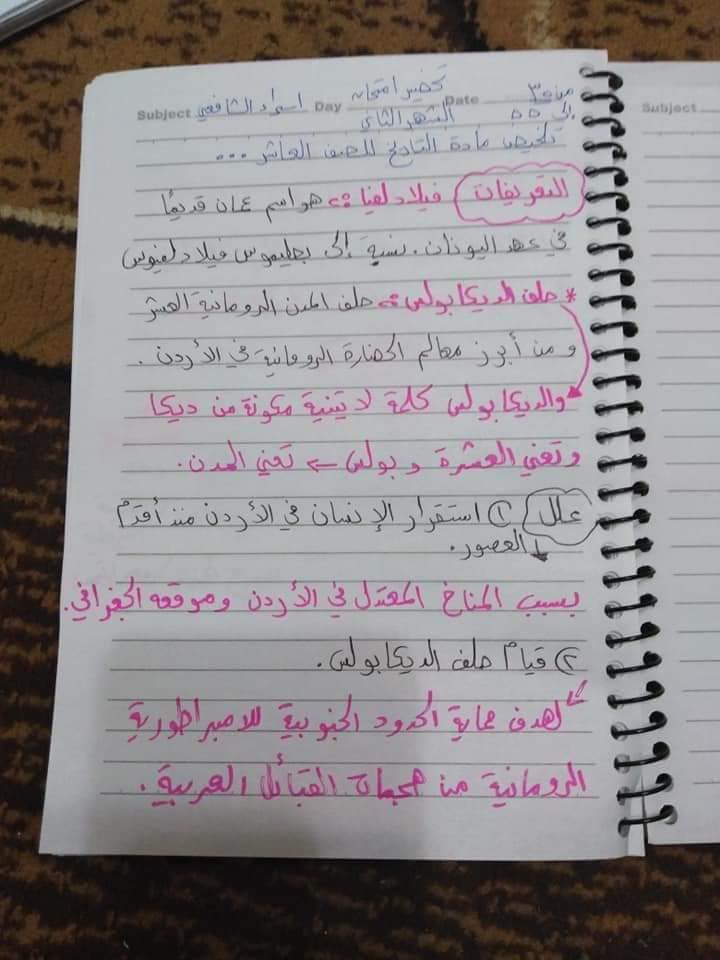 Subject اسراء الشافعي Day تحضير امتحان Date من ٣٥
الشهر الثاني إلى ٥٥
Subject
تلخيص مادة التاريخ للصف العاشر ...
التعريفات فيلادلفيا :- هو اسم عمان قديمًا
في عهد اليونان. نسبة إلى بطليموس فيلادلفيوس
* حلف الديكابولس :- حلف المدن الرومانية العشر
و من أبرز معالم الحضارة الرومانية في الأردن.
والديكابولس كلمة لاتينية مكونة من ديكا
وتعني العشرة و بولس ← تعني المدن.
علل ① استقرار الإنسان في الأردن منذ أقدم
العصور.
بسبب المناخ المعتدل في الأردن وموقعه الجغرافي.
② قيام حلف الديكابولس.
لهدف حماية الحدود الجنوبية للامبراطورية
الرومانية من هجمات القبائل العربية.